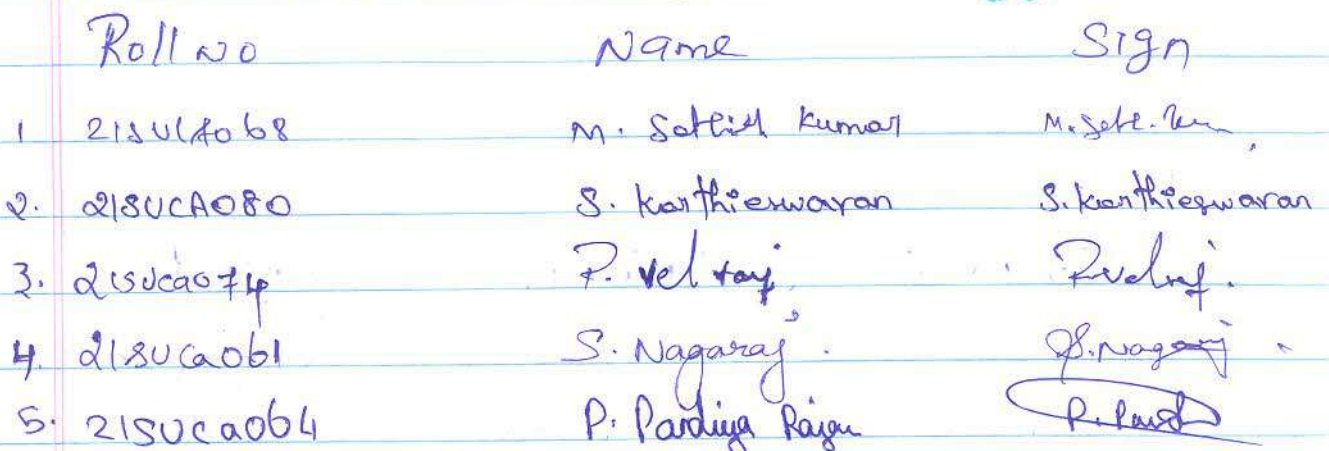 Roll No Name Sign
1 21SUCA068 M. Sathish Kumar
2. 21SUCA080 S. Karthieswaran S. Karthieswaran
3. 21SUCa074 P. Vel raj P.Velraj.
4. 21SUCa061 S. Nagaraj. S. Nagaraj
5. 21SUCa064 P. Pandiya Rajan